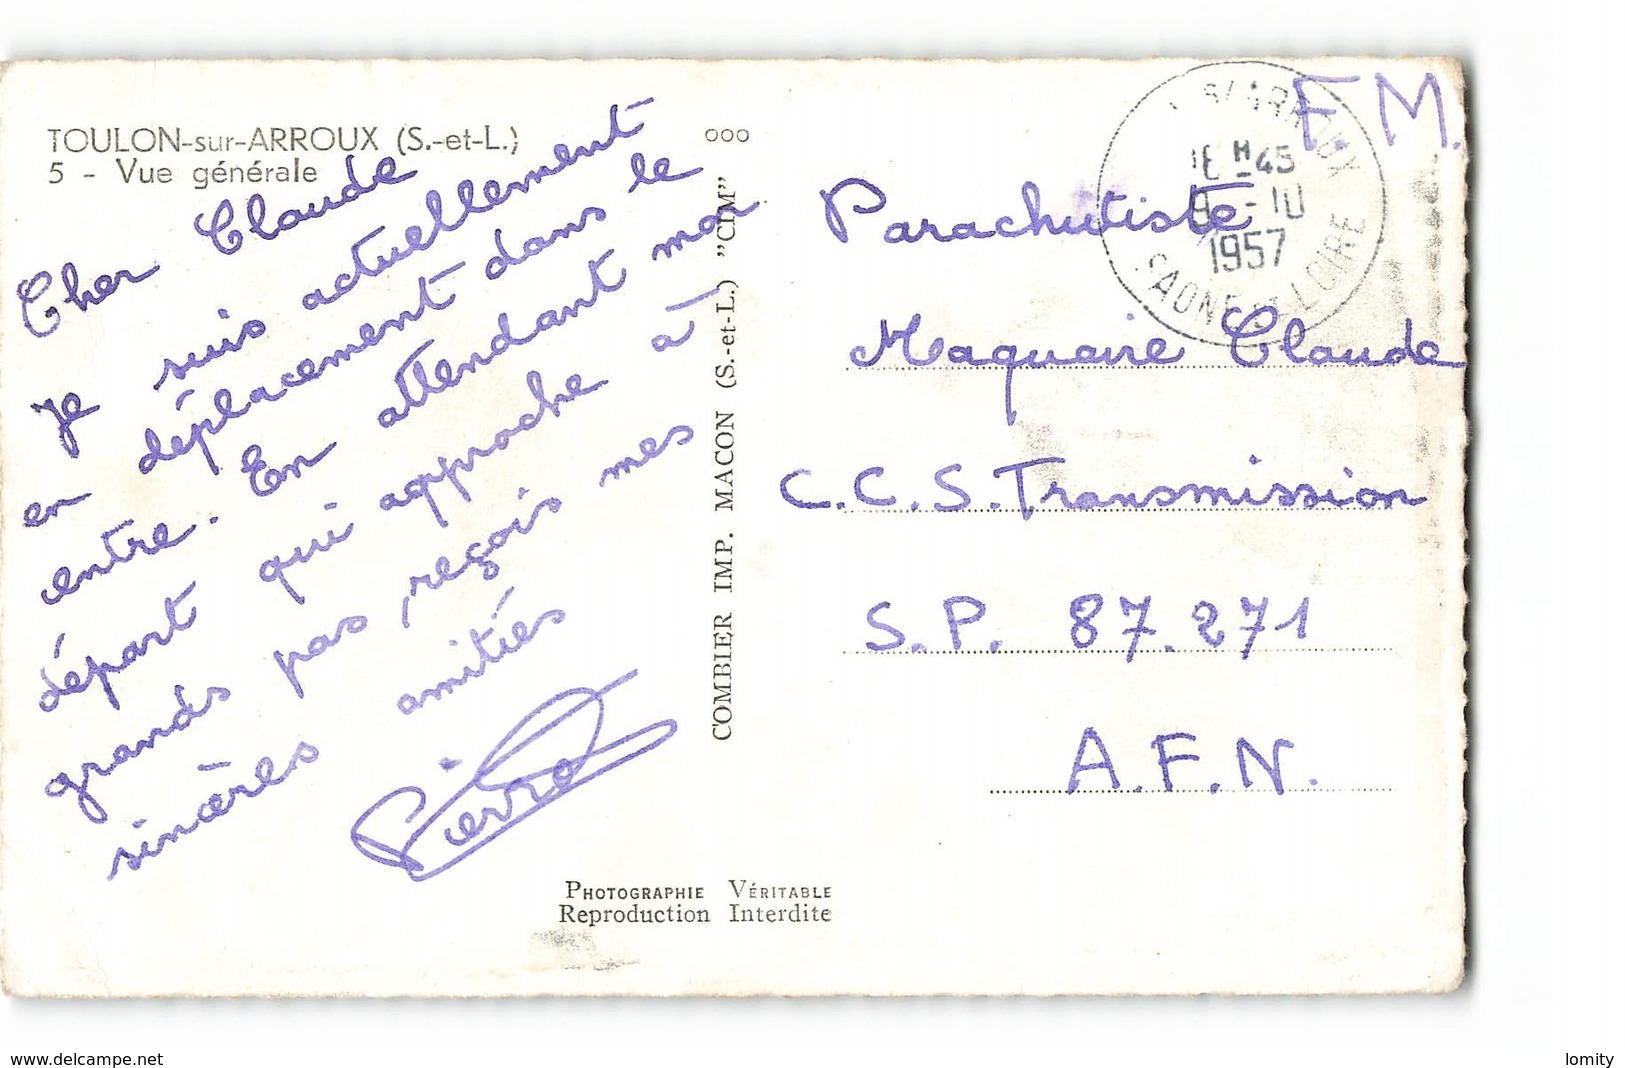 TOULON-sur-ARROUX (S.-et-L.)
5 - Vue générale
ooo
Cher Claude
Je suis actuellement
en déplacement dans le
centre. En attendant mon
départ qui approche à
grands pas, reçois mes
sincères amitiés
Pierro
COMBIER IMP. MACON (S.-et-L.) "CIM"
PHOTOGRAPHIE VÉRITABLE
Reproduction Interdite
F. M.
S/ ARROUX
16 H 45
9 - 10
1957
SAONE-ET-LOIRE
Parachutiste
Maquaire Claude
C.C.S. Transmission
S.P. 87.271
A.F.N.
www.delcampe.net
lomity